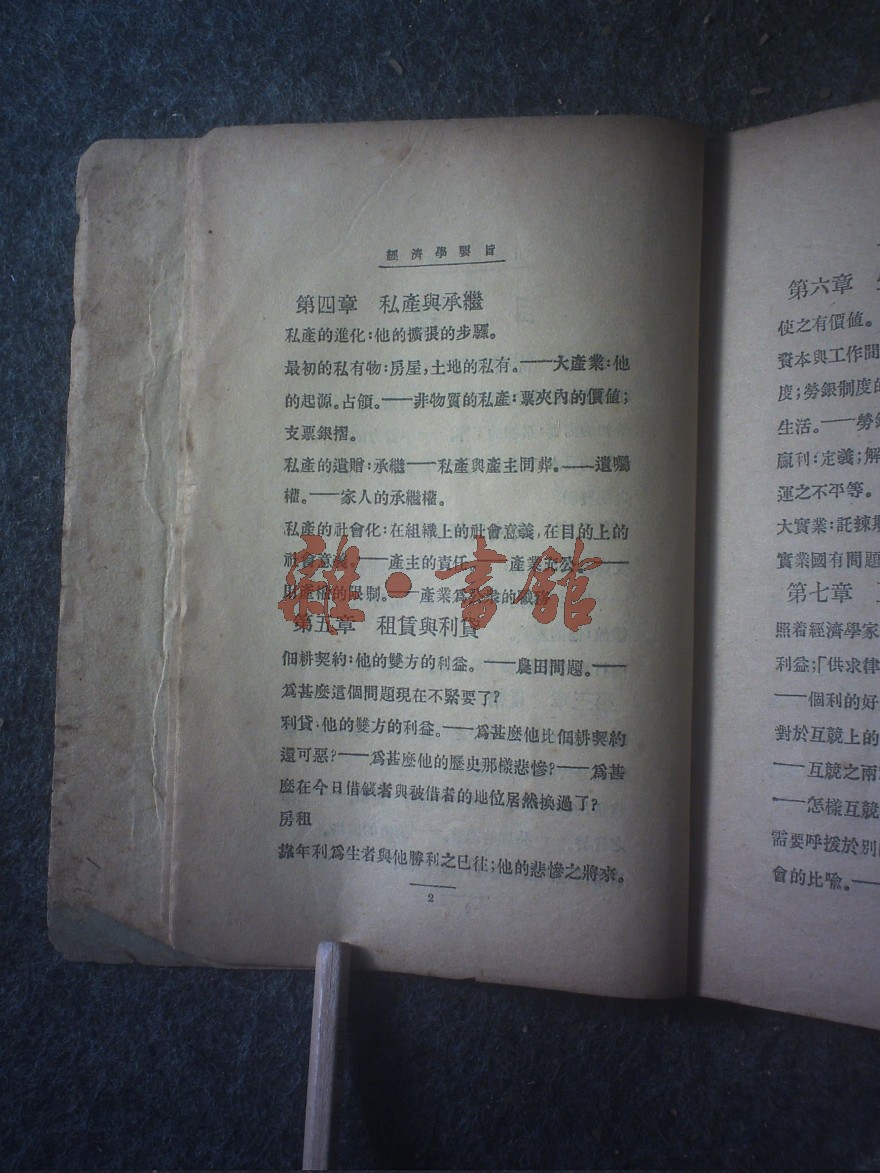 經濟學要旨
第四章 私產與承繼
私產的進化:他的擴張的步驟。
最初的私有物:房屋,土地的私有。——大產業:他
的起源。占領。——非物質的私產:票夾內的價值;
支票銀摺。
私產的遺贈:承繼——私產與產主同葬。——遺囑
權。——家人的承繼權。
私產的社會化:在組織上的社會意義,在目的上的
社會意義。——產主的責任。——產業充公。——
財產權的限制。——產業為公眾的
第五章 租賃與利貸
佃耕契約:他的雙方的利益。——農田問題。——
爲甚麼這個問題現在不緊要了?
利貸:他的雙方的利益。——爲甚麼他比佃耕契約
還可惡?——爲甚麼他的歷史那樣悲慘?——爲甚
麼在今日借錢者與被借者的地位居然換過了?
房租
靠年利爲生者與他勝利之已往;他的悲慘之將來。
2
雜·書館
第六章
使之有價值。
資本與工作間
度;勞銀制度的
生活。——勞銀
贏利:定義;解
運之不平等。
大實業:託辣斯
實業國有問題
第七章
照着經濟學家
利益;「供求律
——個利的好
對於互競上的
——互競之兩
——怎樣互競
需要呼援於別
會的比喩。——